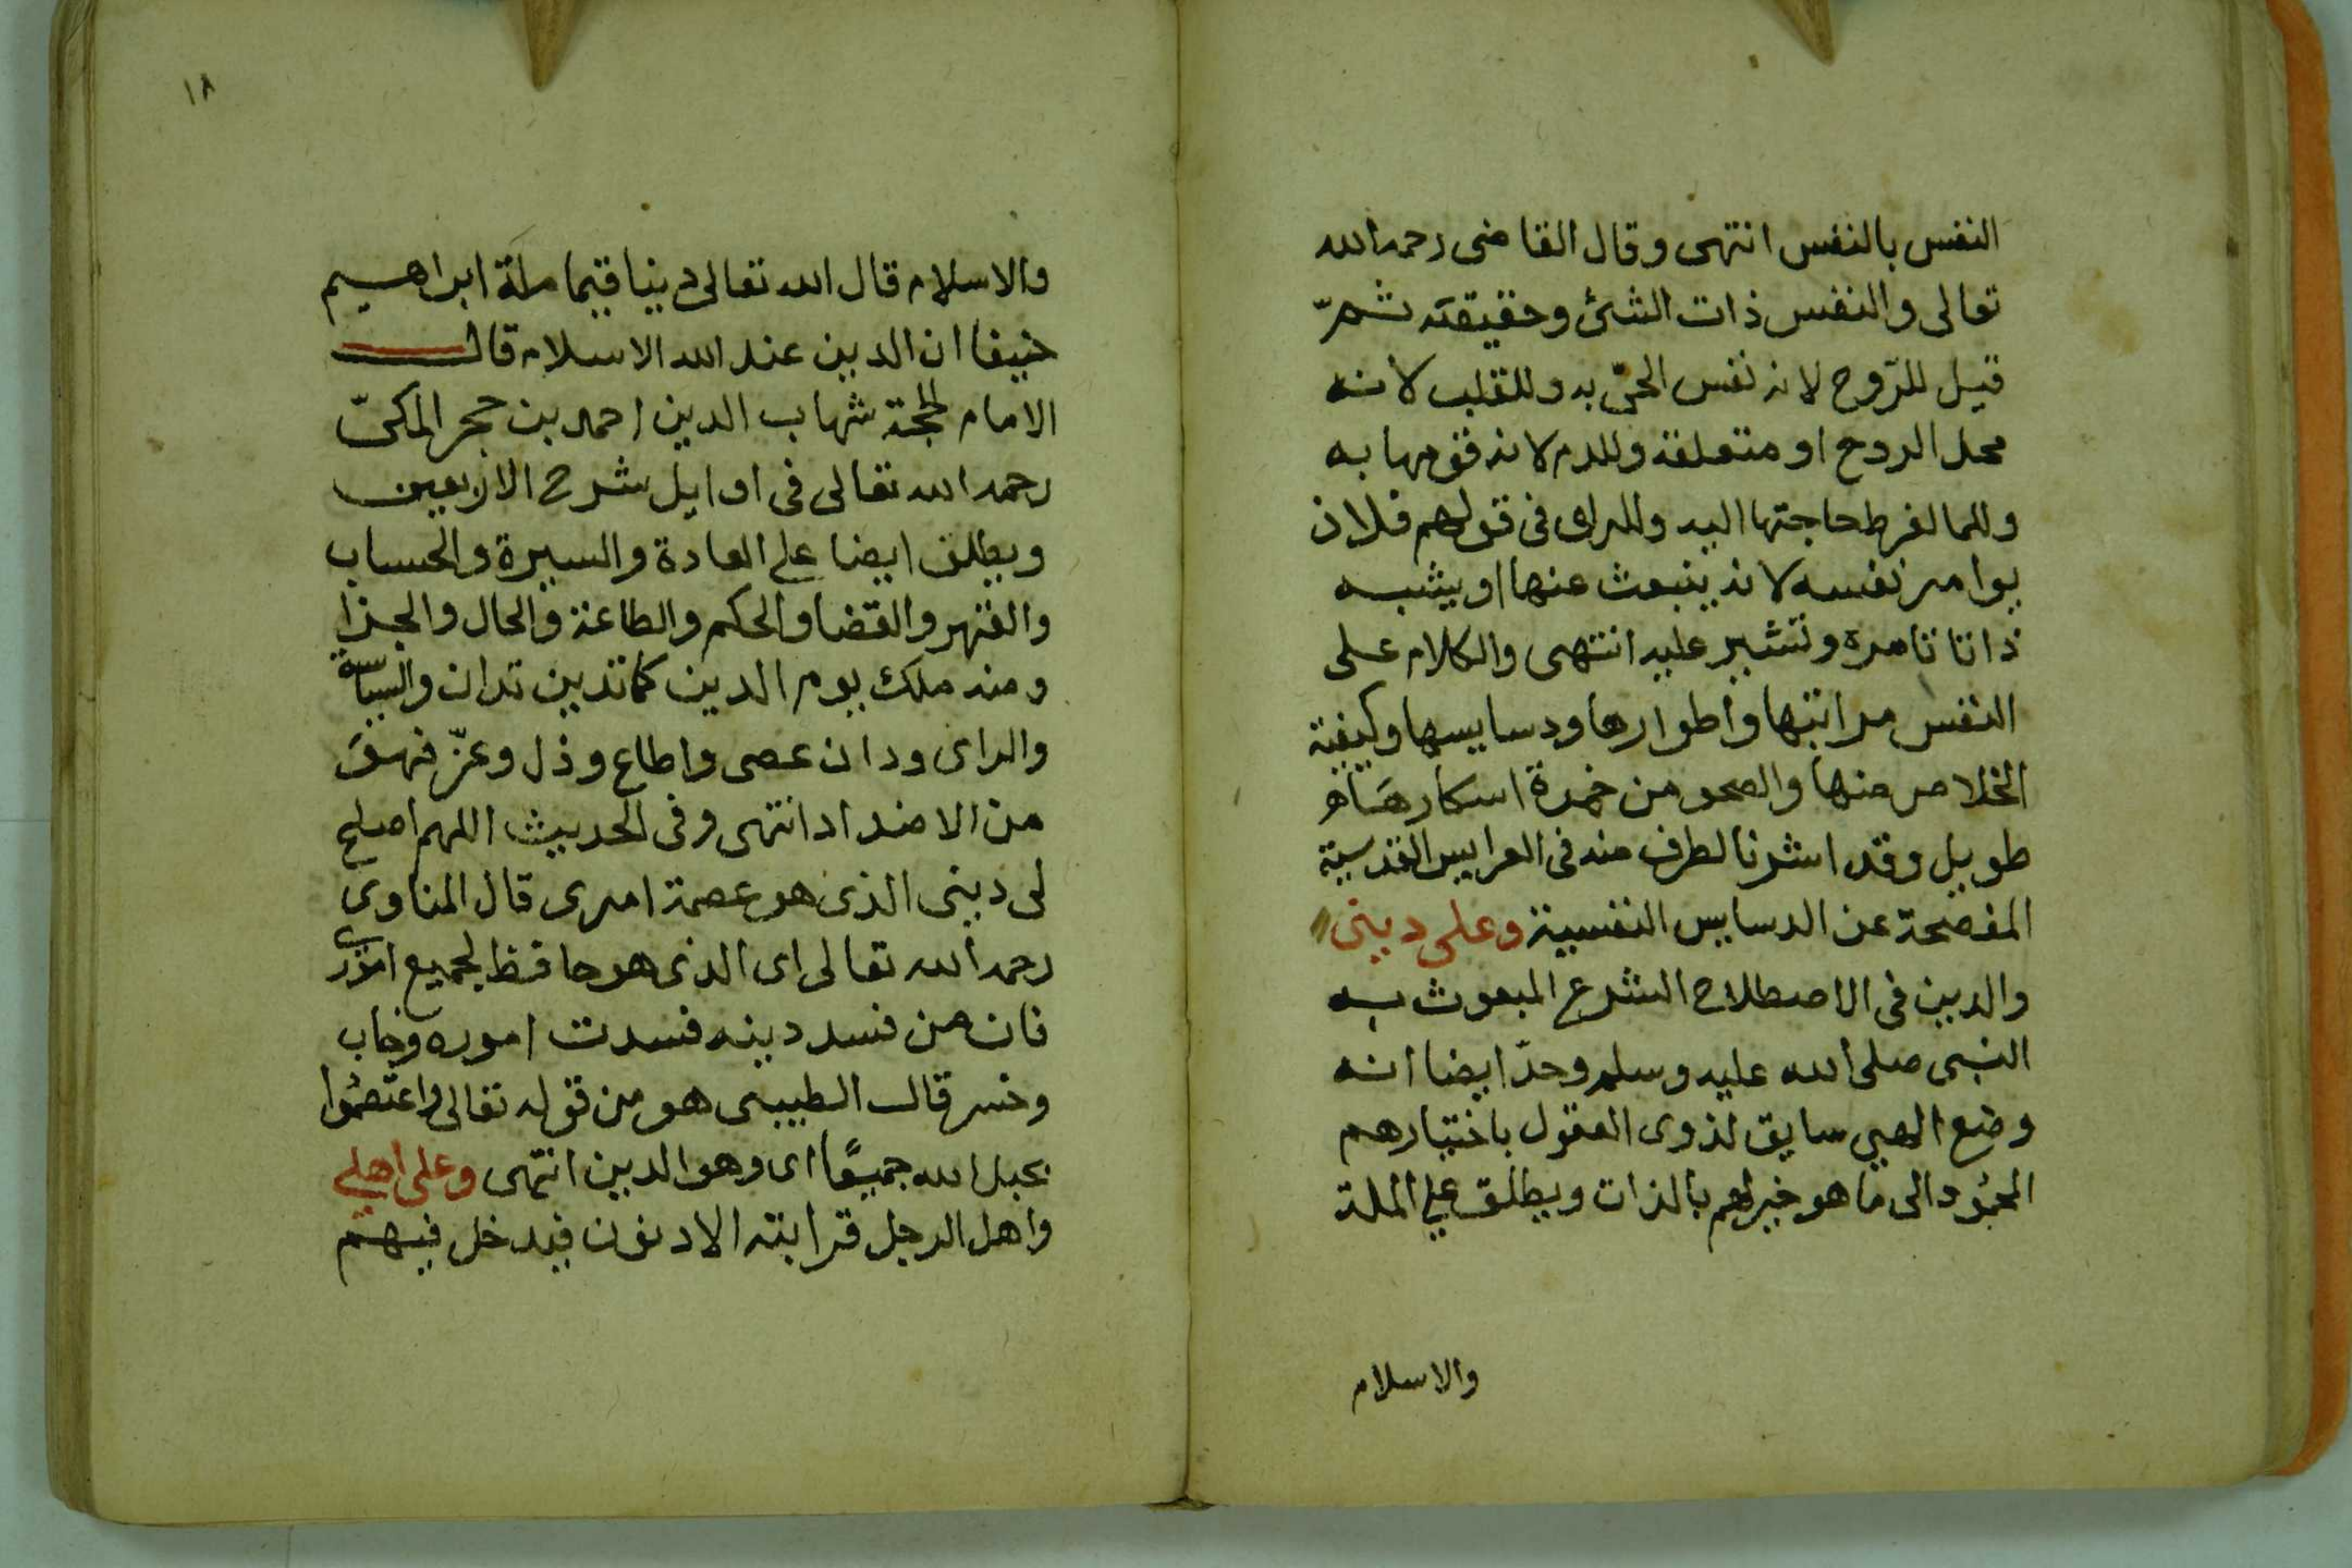 النفس بالنفس انتهى وقال القاضى رحمه الله
تعالى والنفس ذات الشئ وحقيقته ثمّ
قيل للرّوح لانه نفس الحىّ به وللقلب لانه
محل الروح او متعلقه وللدم لانه قومها به
وللما لفرط حاجتها اليه وللراى فى قولهم فلان
يوامر نفسه لانه ينبعث عنها او يشبه
ذاتا تامره وتشير عليه انتهى والكلام على
النفس مراتبها واطوارها ودسايسها وكيفية
الخلاص منها والصحو من خمرة اسكارها
طويل وقد اشرنا لطرف منه فى العرايس القدسية
المفصحة عن الدسايس النفسية وعلى دينى
والدين فى الاصطلاح الشرع المبعوث به
النبى صلى الله عليه وسلم وحدّ ايضا انه
وضع الهى سايق لذوى العقول باختيارهم
المحمود الى ما هو خير لهم بالذات ويطلق على الملة
والاسلام
١٨
والاسلام قال الله تعالى دينا قيما ملة ابراهيم
حنيفا ان الدين عند الله الاسلام قال
الامام الحجة شهاب الدين احمد بن حجر المكىّ
رحمه الله تعالى فى اوايل شرح الاربعين
ويطلق ايضا على العادة والسيرة والحساب
والقهر والقضا والحكم والطاعة والحال والجزا
ومنه ملك يوم الدين كما تدين تدان والسياسة
والراى ودان عصى واطاع وذل وعزّ فهو
من الاضداد انتهى وفى الحديث اللهم اصلح
لى دينى الذى هو عصمة امرى قال المناوى
رحمه الله تعالى اى الذى هو حافظ لجميع امورى
فان من فسد دينه فسدت اموره وخاب
وخسر قال الطيبى هو من قوله تعالى واعتصموا
بحبل الله جميعًا اى وهو الدين انتهى وعلى اهلى
واهل الرجل قرابته الادنون فيدخل فيهم